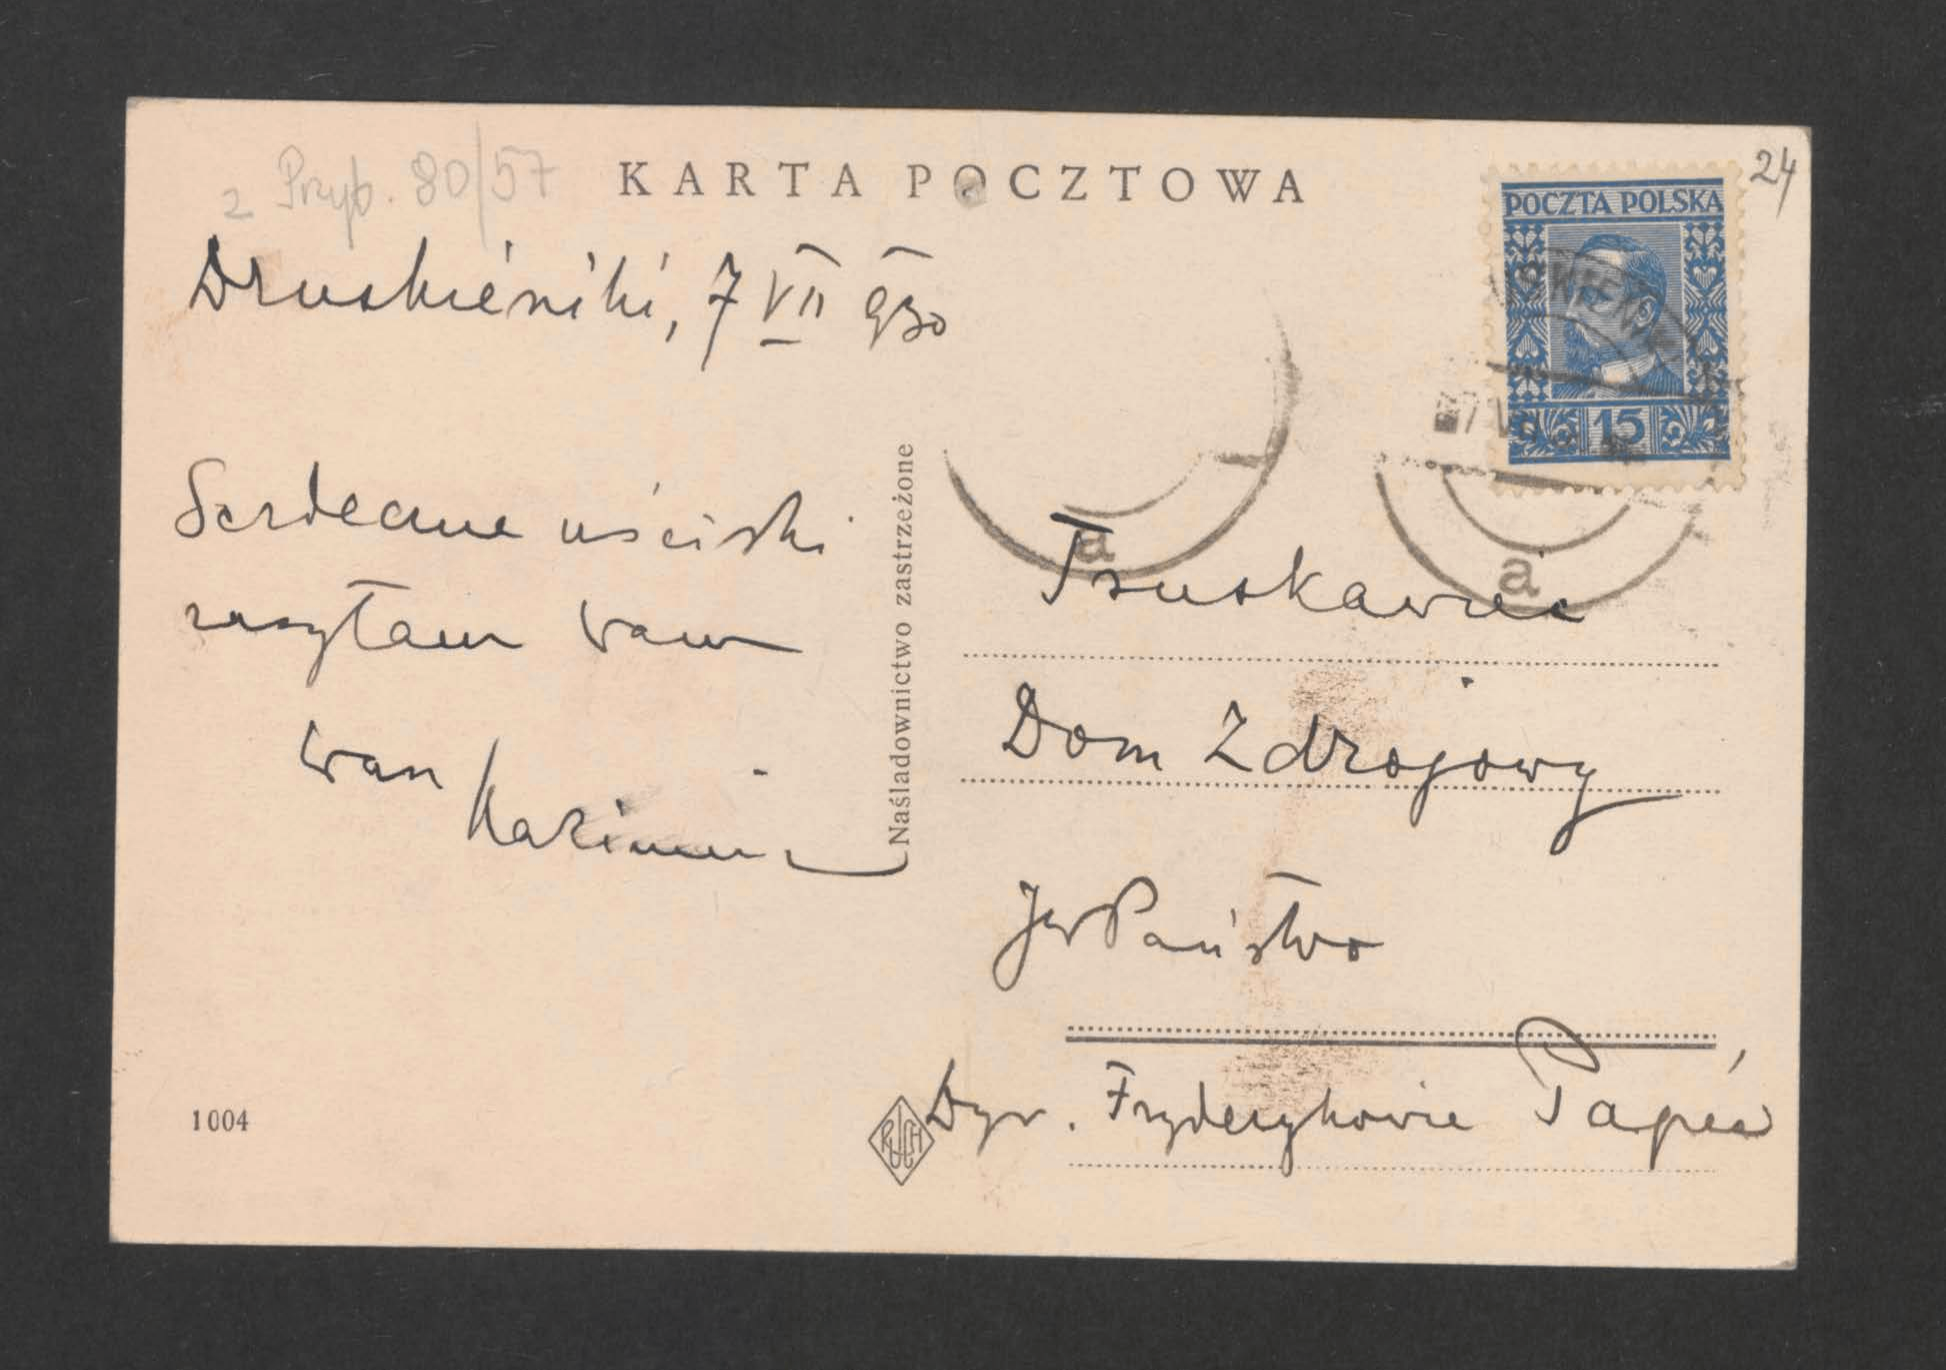 z Przyb. 80/57
KARTA POCZTOWA
24
POCZTA POLSKA
15
Druskieniki, 7 VII 930
Serdeczne uściski
zasyłam Wam
Wasz Kazimierz
Naśladownictwo zastrzeżone
a
a
Truskawiec
Dom Zdrojowy
JW Państwo
Dyr. Fryderykowie Papée
1004
RUCH